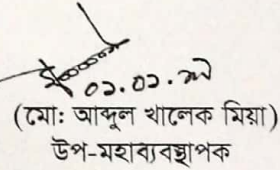 ০১.০১.
(মো: আব্দুল খালেক মিয়া)
উপ-মহাব্যবস্থাপক